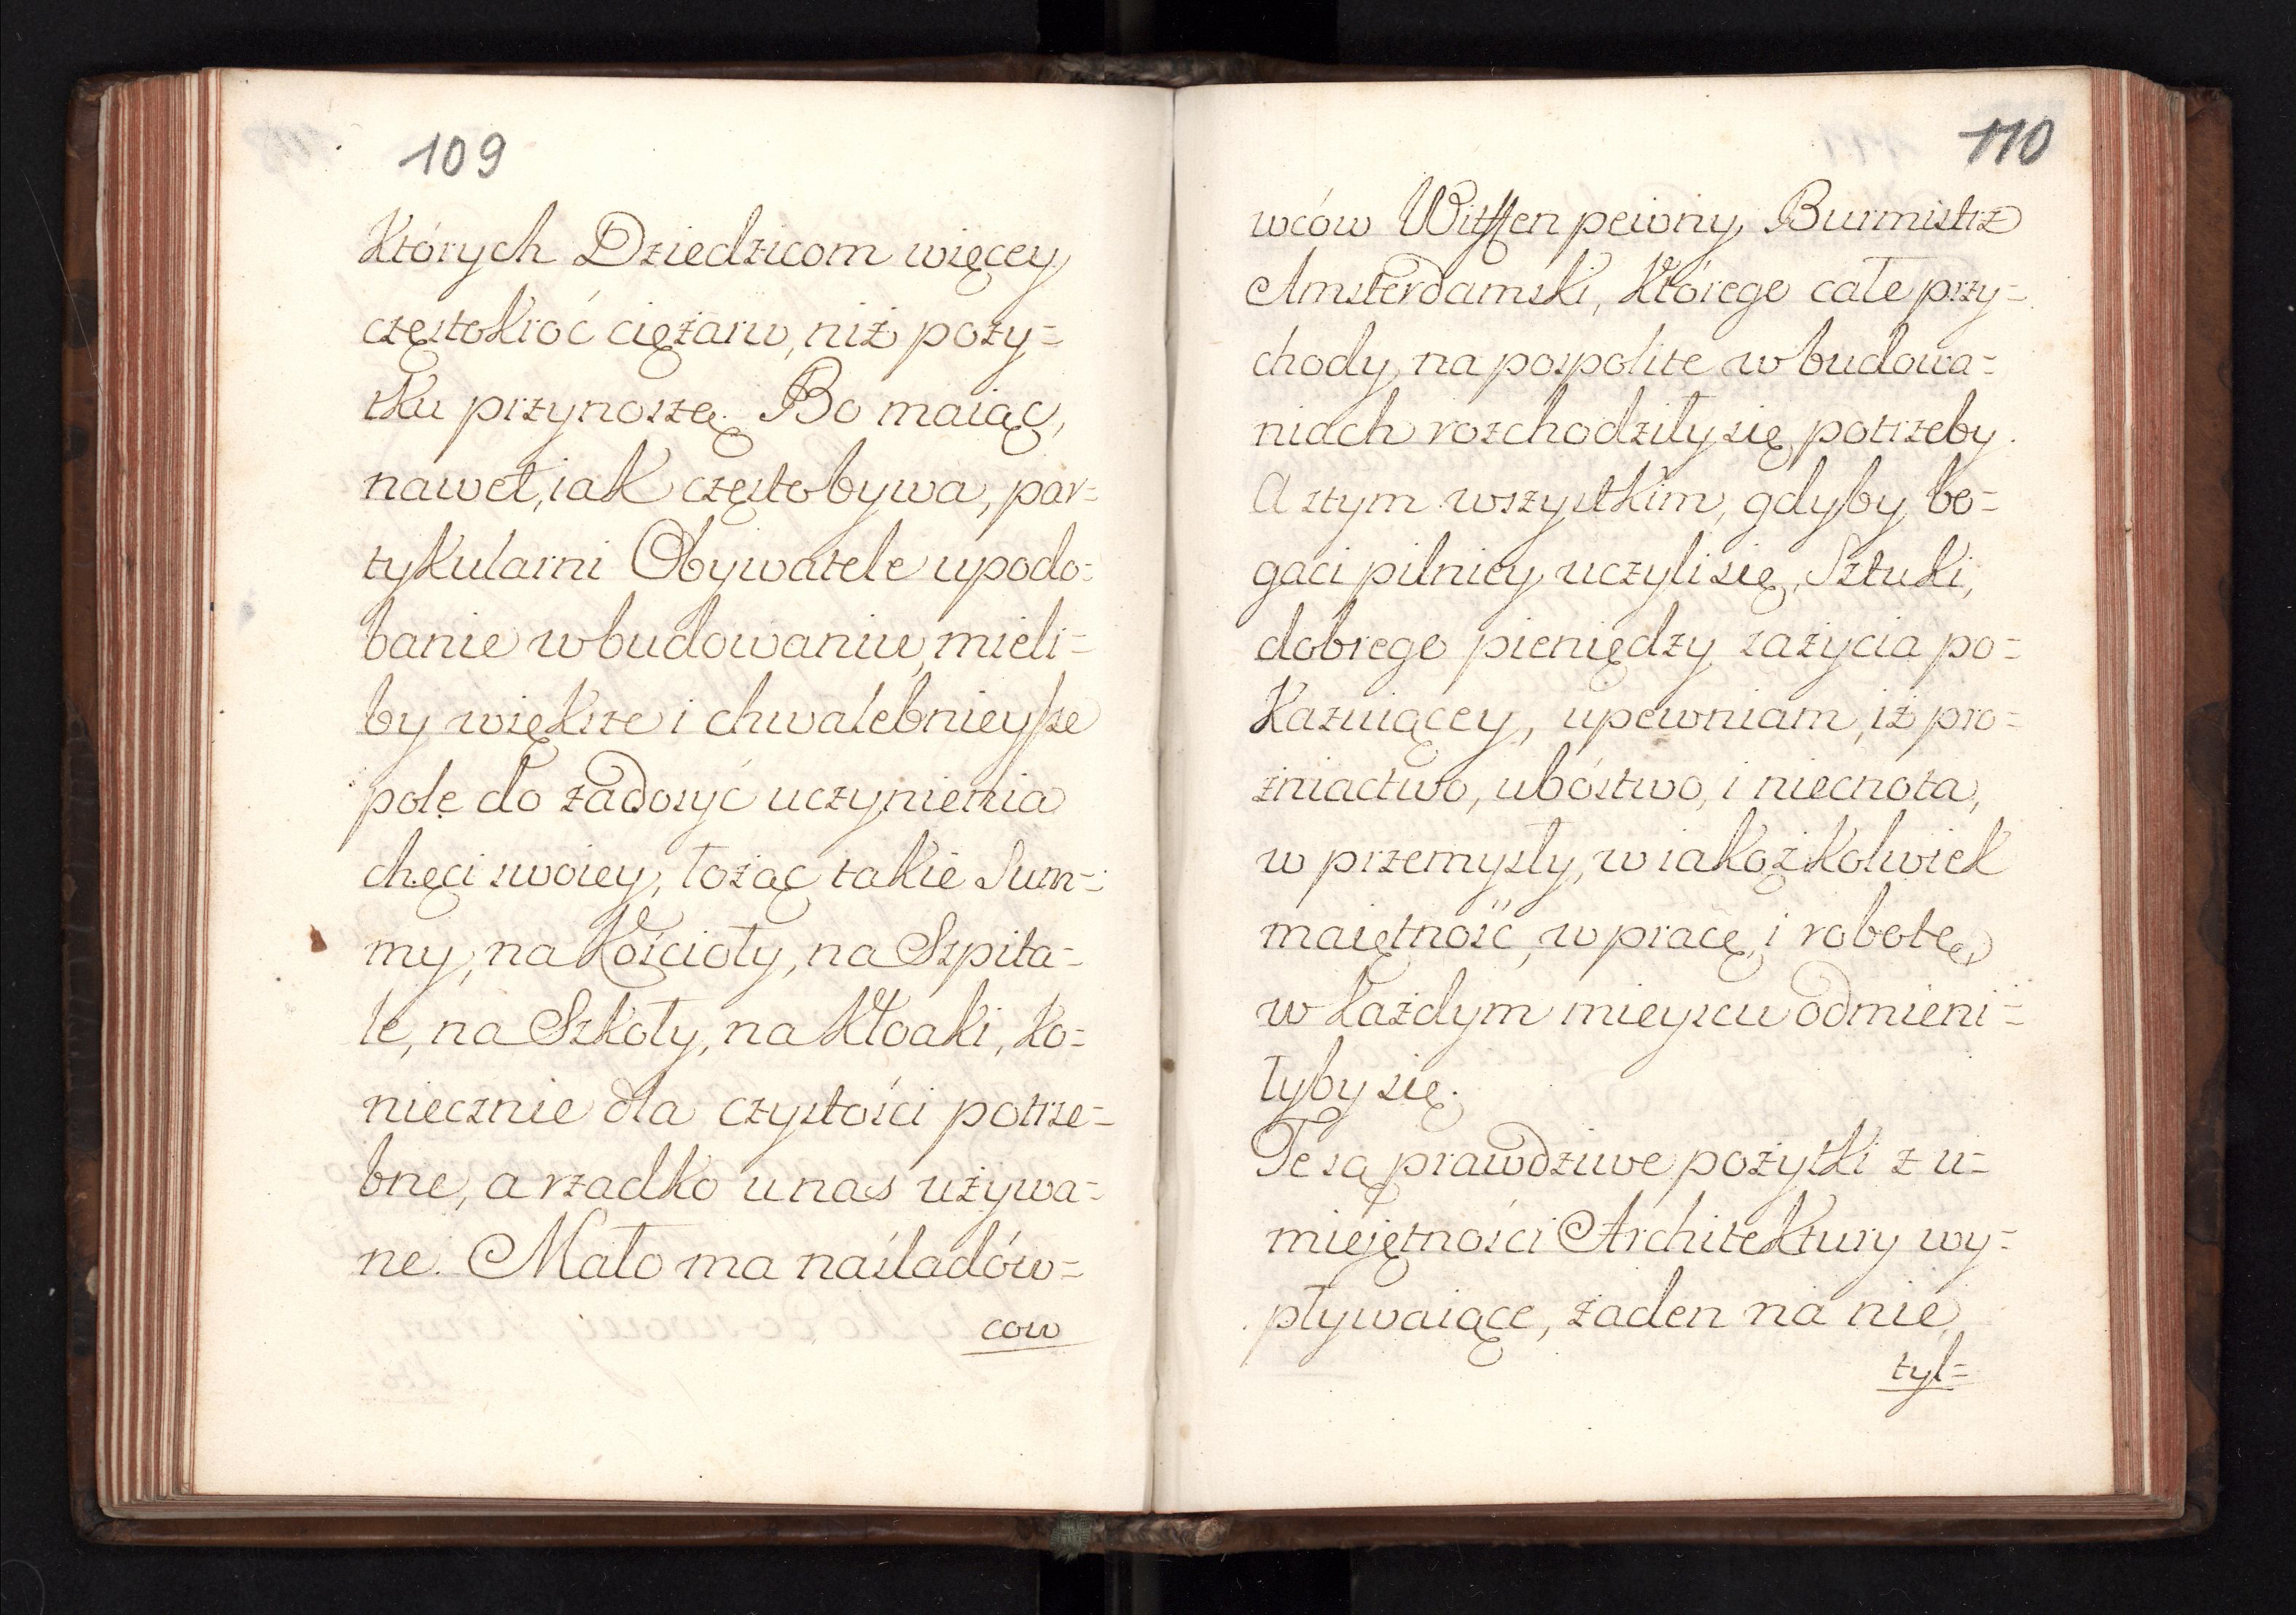 109
Których Dziedzicom więcey
częstokroć ciężaru, niż poży=
tku przynoszą. Bo maiąc,
nawet, iak często bywa, par=
tykularni Obywatele upodo=
banie w budowaniu, mieli=
by większe i chwalebnieysze
pole do zadosyć uczynienia
chęci swoiey, łożąc takie Sum=
my, na Kościoły, na Szpita=
le, na Szkoły, na Kłoaki, ko=
niecznie dla czystości potrze=
bne, a rzadko u nas używa=
ne. Mało ma naśladów=
cow
110
wców Witssen pewny Burmistrz
Amsterdamski, Którego całe przy=
chody na pospolite w budowa=
niach rozchodziły się potrzeby.
A z tym wszystkim, gdyby bo=
gaci pilniey uczyli się Sztuki,
dobrego pieniędzy zażycia po=
Kazuiącey, upewniam, iż pro=
żniactwo, ubóstwo, i niecnota,
w przemysły, w iakążkolwiek
maiętność, w pracę, i robotę,
w każdym mieyscu odmieni=
łyby się.
Te są prawdziwe pożytki z u=
mieiętności Architektury wy=
pływaiące, żaden na nie
tyl=